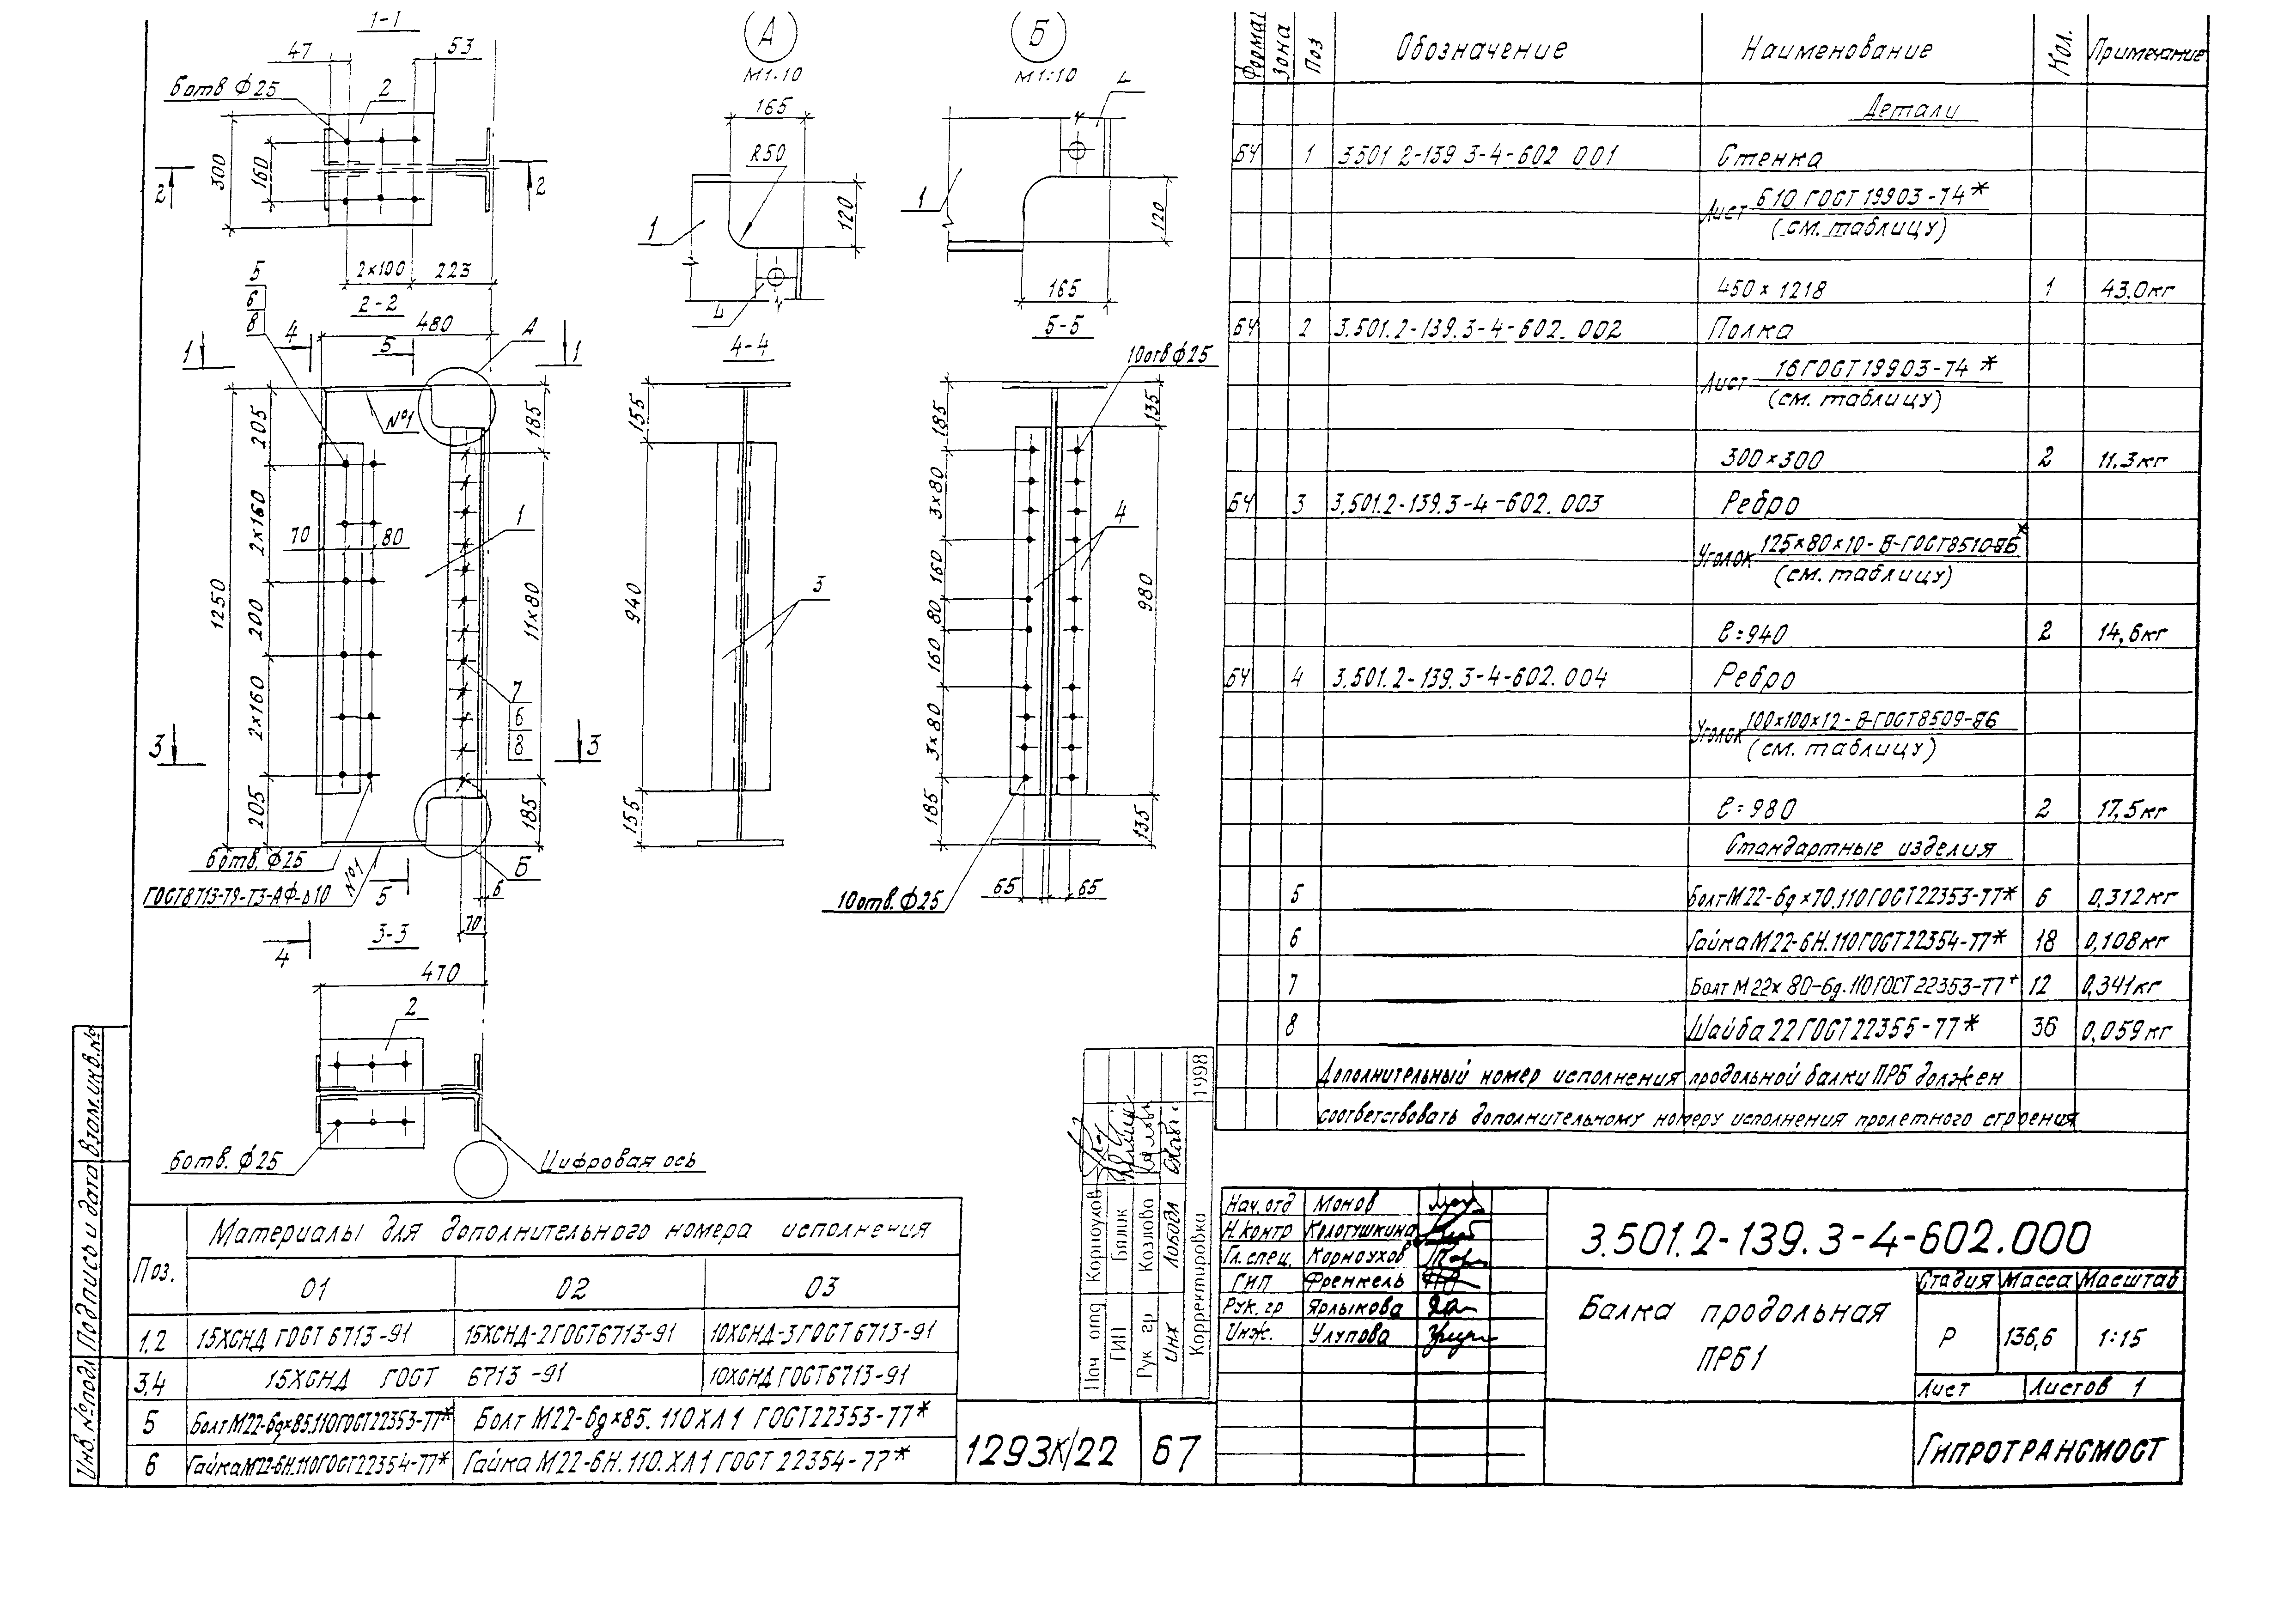 1-1
47
53
6 отв Ф25
2
300
160
2
2
2×100
223
А
М1-10
165
R50
120
1
4
Б
М1:10
4
1
120
165
2-2
5
6
8
480
4
5
А
1
1
№1
205
185
2×160
70
80
1
1250
200
11×80
2×160
7
6
8
3
3
205
185
6 отв. Ф25
ГОСТ8713-79-Т3-АФ-⊿10
№1
5
Б
6
70
4
4-4
155
940
3
155
5-5
10отвФ25
185
135
3×80
4
160
80
980
160
3×80
185
135
65
65
10отв.Ф25
3-3
470
2
6отв.Ф25
Цифровая ось
Формат
Зона
Поз
Обозначение
Наименование
Кол.
Примечание
Детали
БЧ 1 3.501 2-139 3-4-602 001 Стенка
Лист Б10 ГОСТ 19903-74*
(см. таблицу)
450×1218 1 43,0кг
БЧ 2 3.501.2-139.3-4-602.002 Полка
Лист 16 ГОСТ 19903-74*
(см. таблицу)
300×300 2 11,3кг
БЧ 3 3.501.2-139.3-4-602.003 Ребро
Уголок 125×80×10-В-ГОСТ8510-86*
(см. таблицу)
ℓ=940 2 14,6кг
БЧ 4 3.501.2-139.3-4-602.004 Ребро
Уголок 100×100×12-В-ГОСТ8509-86
(см. таблицу)
ℓ=980 2 17,5кг
Стандартные изделия
5 Болт М22-6g×70.110ГОСТ22353-77* 6 0,312кг
6 Гайка М22-6Н.110ГОСТ22354-77* 18 0,108кг
7 Болт М22×80-6g.110ГОСТ22353-77* 12 0,341кг
8 Шайба 22ГОСТ22355-77* 36 0,059кг
Дополнительный номер исполнения продольной балки ПРБ должен
соответствовать дополнительному номеру исполнения пролетного строения
Инв. № подл
Подпись и дата
Взам.инв.№
Поз.
Материалы для дополнительного номера исполнения
01 02 03
1,2 15ХСНД ГОСТ6713-91 15ХСНД-2ГОСТ6713-91 10ХСНД-3ГОСТ6713-91
3,4 15ХСНД ГОСТ 6713-91 10ХСНД ГОСТ6713-91
5 Болт М22-6g×85.110ГОСТ22353-77* Болт М22-6g×85.110ХЛ1 ГОСТ22353-77*
6 Гайка М22-6Н.110ГОСТ22354-77* Гайка М22-6Н.110.ХЛ1 ГОСТ 22354-77*
1293К/22
67
Нач отд Корноухов
ГИП Бялик
Рук гр Козлова
Инж Лобода
Корректировка 1998
Нач. отд Монов
Н.контр Колотушкина
Гл.спец. Корноухов
ГИП Френкель
Рук. гр Ярлыкова
Инж. Улупова
3.501.2-139.3-4-602.000
Балка продольная
ПРБ1
Стадия Масса Масштаб
Р 136,6 1:15
Лист Листов 1
ГИПРОТРАНСМОСТ